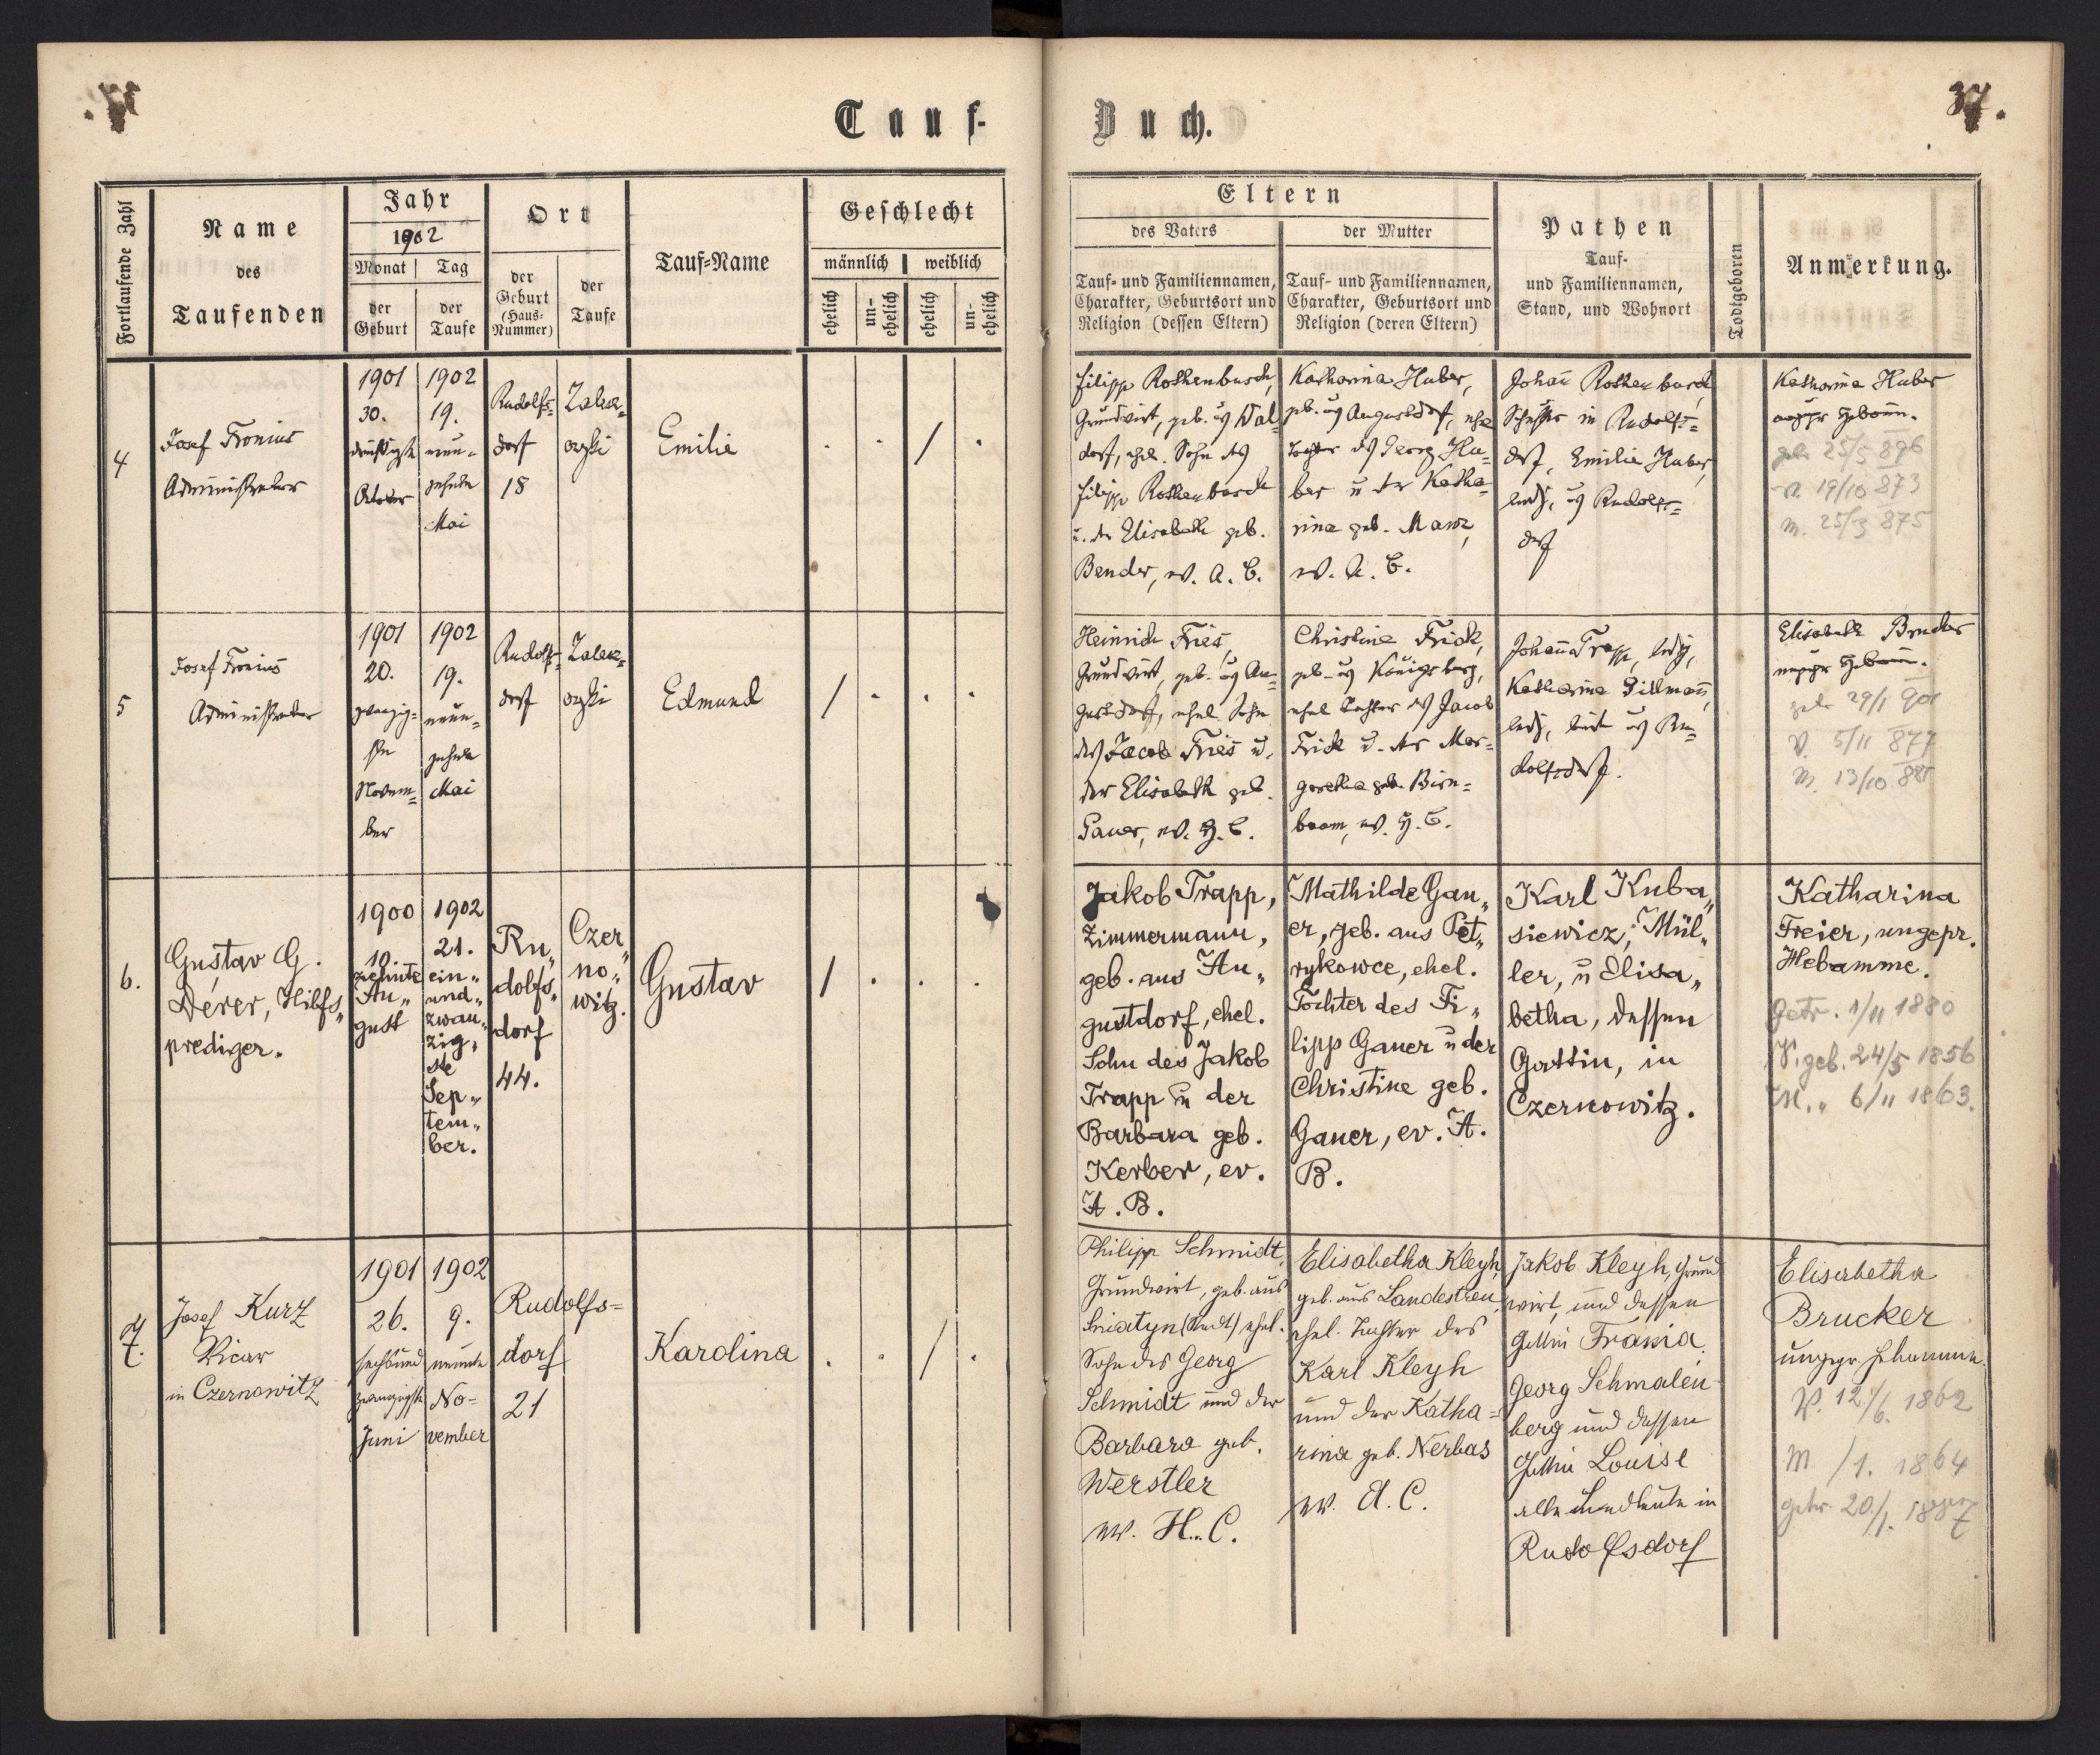 Tauf-
Buch.
37.
Fortlaufende Zahl
Name
des
Taufenden
Jahr
1902
Monat
Tag
der
Geburt
der
Taufe
Ort
der
Geburt
(Haus-
Nummer)
der
Taufe
Tauf-Name
Geschlecht
männlich
weiblich
ehelich
un-
ehelich
ehelich
un-
ehelich
Eltern
des Vaters
der Mutter
Tauf- und Familiennamen,
Charakter, Geburtsort und
Religion (dessen Eltern)
Tauf- und Familiennamen,
Charakter, Geburtsort und
Religion (deren Eltern)
Pathen
Tauf-
und Familiennamen,
Stand, und Wohnort
Todtgeboren
Anmerkung.
4
Josef Fronius
Administrator
1901
30.
dreißigste
October
1902
19.
neun-
zehnte
Mai
Rudolfs-
dorf
18
Zalesz-
czyki
Emilie
Filipp Rothenbusch,
Grundwirt, geb. aus Wal-
dorf, ehel. Sohn des
Filipp Rothenbusch
u. der Elisabeth geb.
Bender, ev. A. C.
Katharina Huber,
geb. aus Augustdorf, ehel
Tochter des Georg Hu-
ber u der Katha-
rina geb. Manz,
ev. A. C.
Johann Rothenbusch
in Rudolfs-
dorf, Emilie Huber,
ledig, aus Rudolfs-
dorf
Katharina Huber
ungepr Hebamm.
geb 25/5 896
V. 19/10 873
M. 25/3 875
5
Josef Fronius
Administrator
1901
20.
zwanzig-
ste
Novem-
ber
1902
19.
neun-
zehnte
Mai
Rudolfs-
dorf
Zalesz-
czyki
Edmund
Heinrich Fries,
Grundwirt, geb. aus Au-
gustdorf, ehel Sohn
des Jacob Fries u.
der Elisabeth geb.
Pauer, ev. H. C.
Christine Frick,
geb. aus Königsberg,
ehel Tochter des Jacob
Frick u. der Mar-
garetha geb. Birn-
baum, ev. H. C.
Johann Trapp, ledig,
Katharina Dillmann,
ledig, beide aus Ru-
dolfsdorf.
Elisabeth Brucker
ungepr Hebamm.
geb 29/1 901
V. 5/11 877
M. 13/10 881
6.
Gustav G.
Dérer, Hilfs„
prediger.
1900
10.
zehnte
Au„
gust
1902
21.
ein„
und„
zwan„
zig„
ste
Sep„
tem„
ber.
Ru„
dolfs„
dorf
44.
Czer„
no„
witz.
Gustav
Jakob Trapp,
Zimmermann,
geb. aus Au„
gustdorf, ehel.
Sohn des Jakob
Trapp u der
Barbara geb.
Kerber, ev.
A. B.
Mathilde Gau„
er, geb. aus Pet„
rykowce, ehel.
Tochter des Fi„
lipp Gauer u der
Christine geb.
Gauer, ev. A.
B.
Karl Kuba„
siewicz, Mül„
ler, u Elisa„
betha, dessen
Gattin, in
Czernowitz.
Katharina
Freier, ungepr.
Hebamme.
Getr. 1/11 1880
V. geb. 24/5 1856
M. „ 6/11 1863.
7.
Josef Kurz
Vicar
in Czernowitz
1901
26.
sechsund
zwanzigste
Juni
1902
9.
neunte
No-
vember
Rudolfs-
dorf
21
Karolina
Philipp Schmidt,
Grundwirt, geb. aus
Sniatyn (Stadt) ehel.
Sohn des Georg
Schmidt und der
Barbara geb.
Werstler
ev. H. C.
Elisabetha Kleyh,
geb. aus Landestreu,
ehel. Tochter des
Karl Kleyh
und der Katha-
rina geb. Nerbas
ev. A. C.
Jakob Kleyh, Grund
wirt, und dessen
Gattin Frania.
Georg Schmalen-
berg und dessen
Gattin Louise
alle Landleute in
Rudolfsdorf
Elisabetha
Brucker
ungepr. Hebamme.
V. 12./6. 1862
M /1. 1864
getr. 20./1. 1887